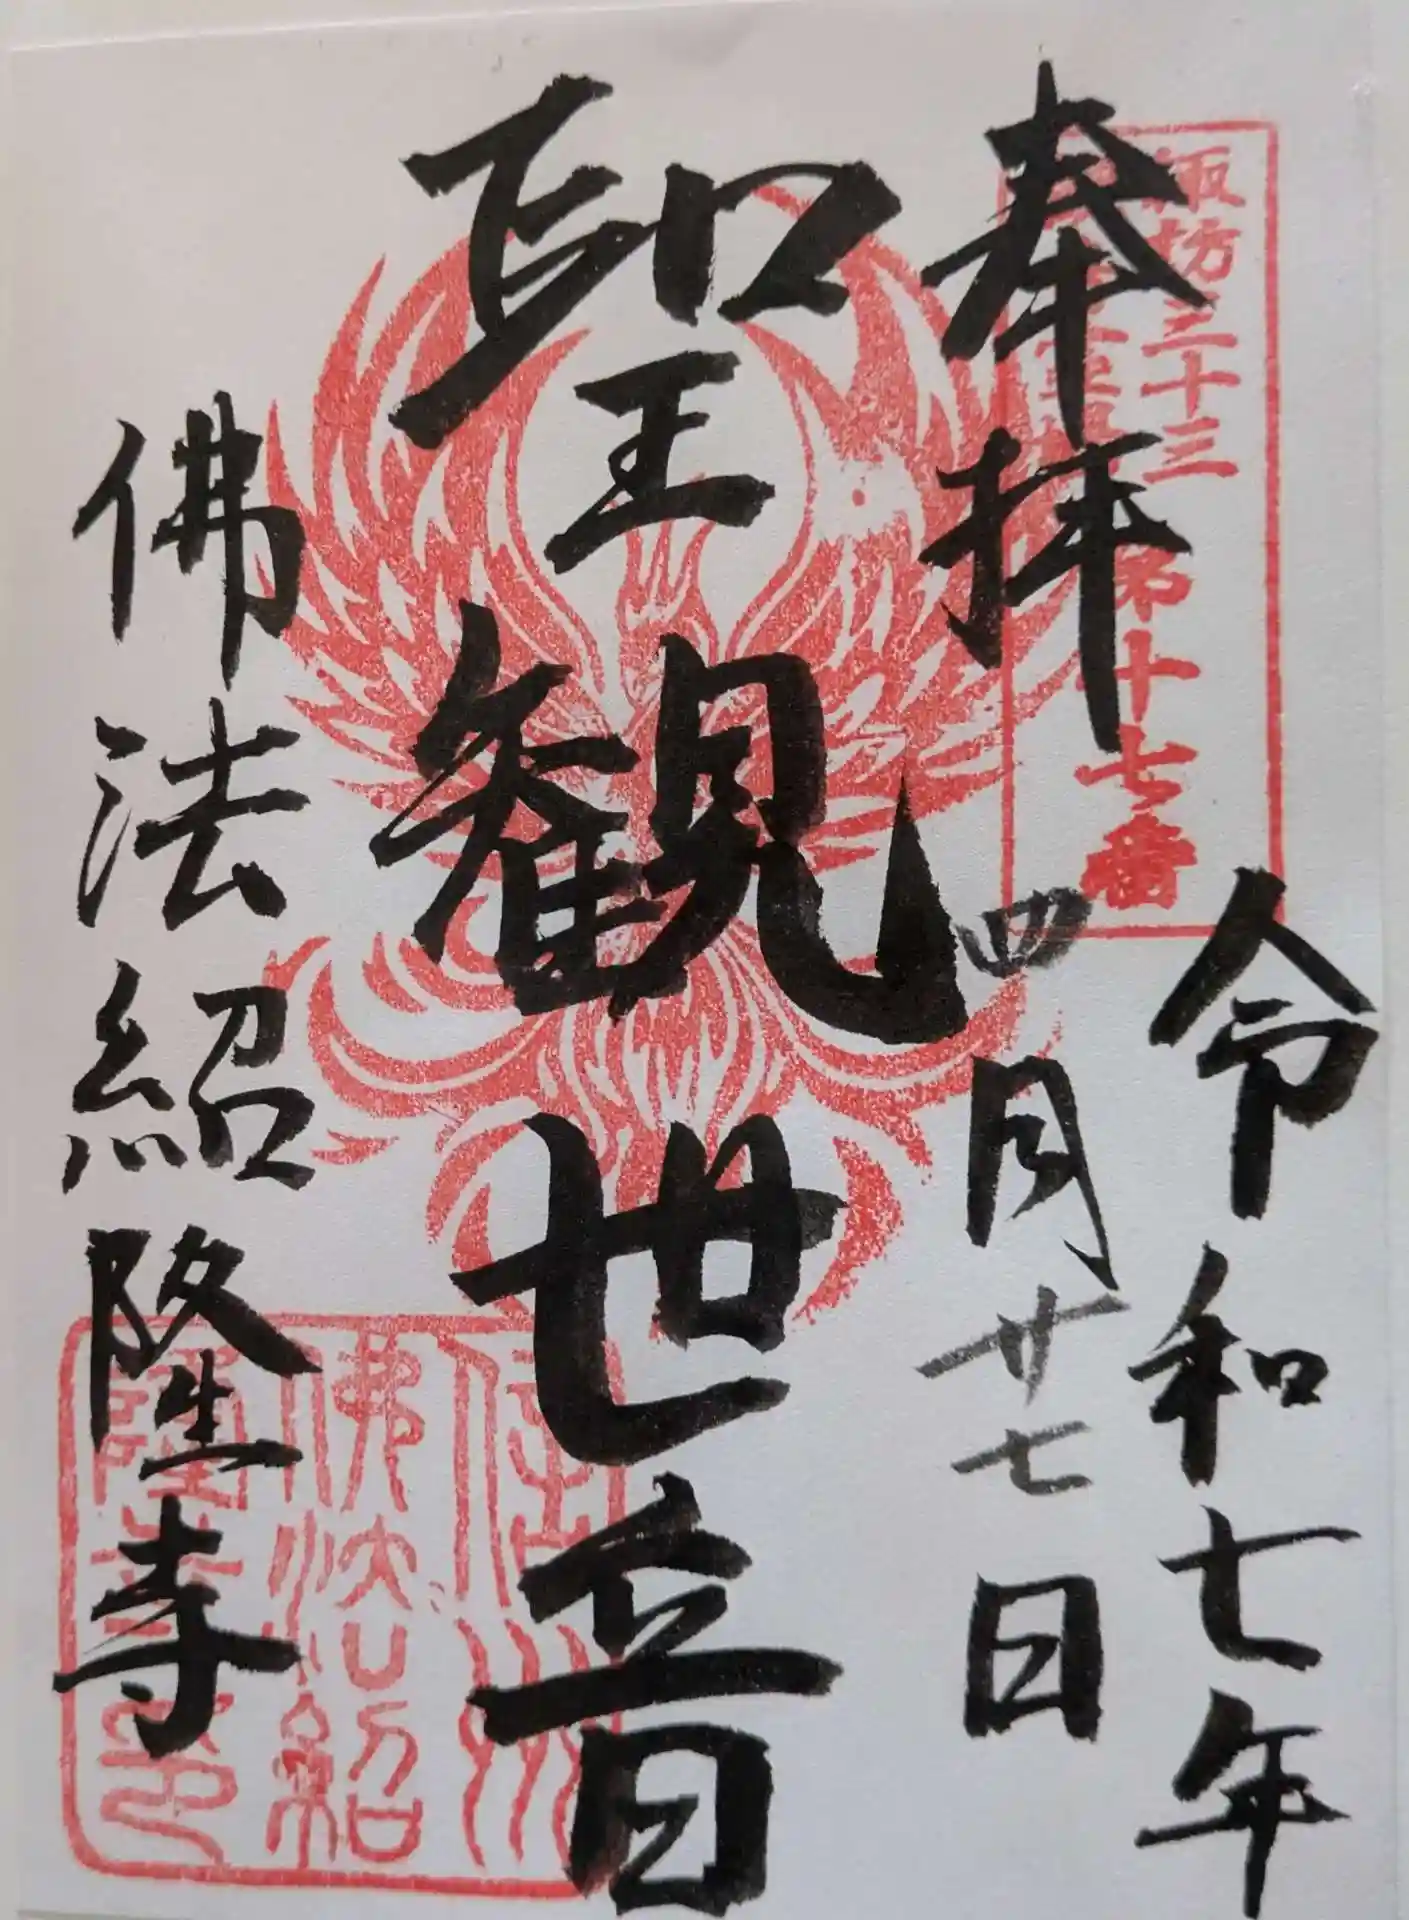 奉拝
諏訪三十三
第十七番
令和七年
四月廿七日
聖観世音
佛法紹隆寺
佛法紹